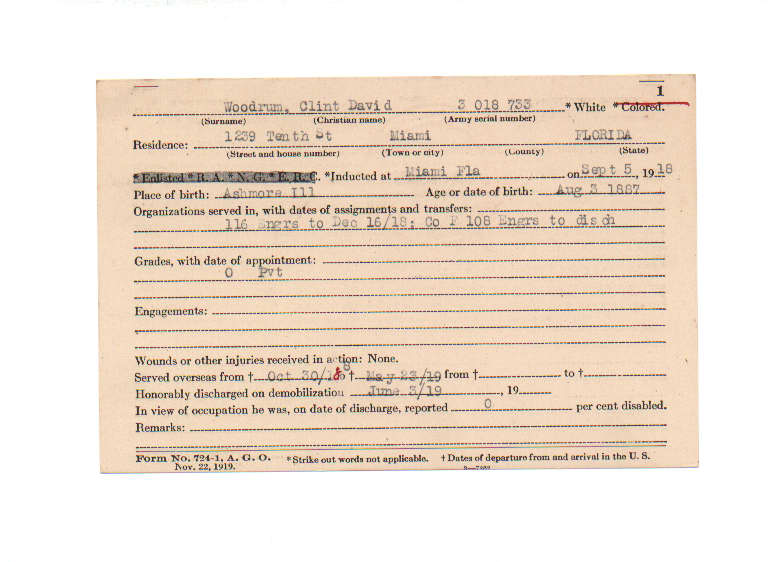 1
Woodrum, Clint David 3 018 733 * White * Colored.
(Surname) (Christian name) (Army serial number)
Residence: 1239 Tenth St Miami FLORIDA
(Street and house number) (Town or city) (County) (State)
* Enlisted * R. A. * N. G. * E. R. C. *Inducted at Miami Fla on Sept 5, 1918
Place of birth: Ashmore Ill Age or date of birth: Aug 3 1887
Organizations served in, with dates of assignments and transfers:
116 Engrs to Dec 16/18; Co F 108 Engrs to disch
Grades, with date of appointment:
O Pvt
Engagements:
Wounds or other injuries received in action: None.
Served overseas from † Oct 30/18 † May 23/19 from † to †
Honorably discharged on demobilization June 3/19, 19
In view of occupation he was, on date of discharge, reported 0 per cent disabled.
Remarks:
Form No. 724-1, A. G. O. *Strike out words not applicable. † Dates of departure from and arrival in the U. S.
Nov. 22, 1919.